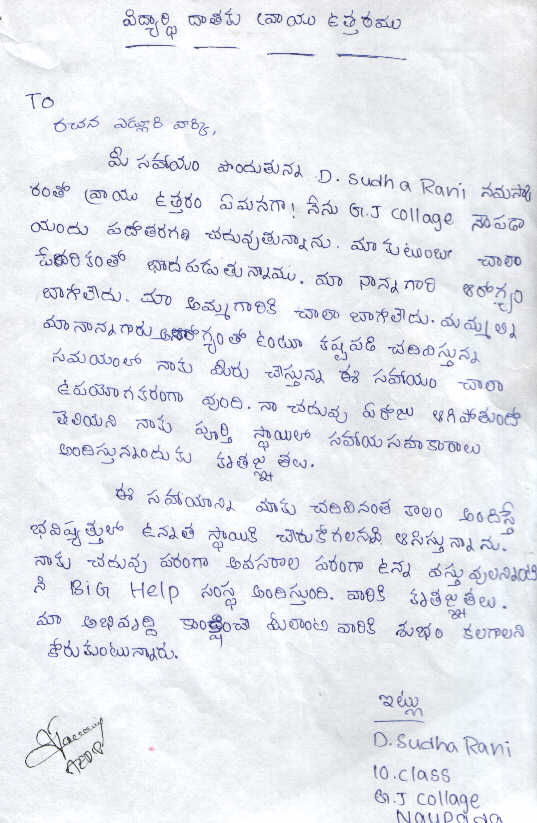 విద్యార్థి దాతకు వ్రాయు ఉత్తరము
To
రచన ఎల్లూరి వార్కి,
మీ సహాయం పొందుతున్న D. Sudha Rani నమస్కా
రంతో వ్రాయు ఉత్తరం ఏమనగా! నేను G.J collage నౌపడా
యందు పదోతరగతి చదువుతున్నాను. మా కుటుంబం చాలా
పేదరికంతో బాదపడుతున్నాము. మా నాన్నగారి ఆరోగ్యం
బాగాలేదు. మా అమ్మగారికి చాలా బాగాలేదు. మమ్మల్ని
మానాన్నగారు అనారోగ్యంతో ఉంటూ కష్టపడి చదివిస్తున్న
సమయంలో నాకు మీరు చేస్తున్న ఈ సహాయం చాలా
ఉపయోగకరంగా వుంది. నా చదువు ఏరోజు ఆగిపోతుందో
తెలియని నాకు పూర్తి స్థాయిలో సహాయసహకారాలు
అందిస్తునందుకు కృతజ్ఞతలు.
ఈ సహాయాన్ని మాకు చదివినంత కాలం అందిస్తే
భవిష్యత్తులో ఉన్నత స్థాయికి చేరుకోగలనని ఆసిస్తున్నాను.
నాకు చదువు పరంగా అవసరాల పరంగా ఉన్న వస్తువులన్నింటి
ని BiG Help సంస్థ అందిస్తుంది. వారికి కృతజ్ఞతలు.
మా అభివృద్ది కాంక్షించే మీలాంటి వారికి శుభం కలగాలని
కోరుకుంటున్నారు.
ఇట్లు
D. Sudha Rani
10.class
G.J collage
Naupada